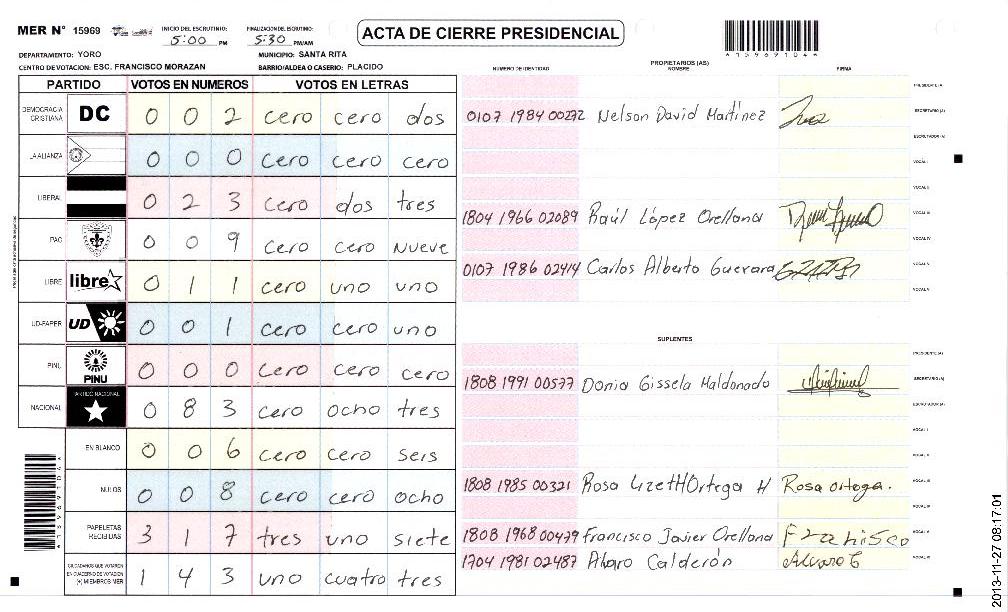 MER N° 15969
INICIO DEL ESCRUTINIO: 5:00 PM
FINALIZACION DEL ESCRUTINIO: 5:30 PM/AM
ACTA DE CIERRE PRESIDENCIAL
DEPARTAMENTO: YORO
MUNICIPIO: SANTA RITA
CENTRO DE VOTACION: ESC. FRANCISCO MORAZAN
BARRIO/ALDEA O CASERIO: PLACIDO
PARTIDO VOTOS EN NUMEROS VOTOS EN LETRAS
DEMOCRACIA CRISTIANA DC 0 0 2 cero cero dos
LA ALIANZA 0 0 0 cero cero cero
LIBERAL 0 2 3 cero dos tres
PAC 0 0 9 cero cero nueve
LIBRE libre 0 1 1 cero uno uno
UD-FAPER UD 0 0 1 cero cero uno
PINU PINU 0 0 0 cero cero cero
NACIONAL PARTIDO NACIONAL 0 8 3 cero ocho tres
EN BLANCO 0 0 6 cero cero seis
NULOS 0 0 8 cero cero ocho
PAPELETAS RECIBIDAS 3 1 7 tres uno siete
CIUDADANOS QUE VOTARON EN CUADERNO DE VOTACION (+) MIEMBROS MER 1 4 3 uno cuatro tres
PROPIETARIOS (AS)
NUMERO DE IDENTIDAD NOMBRE FIRMA
PRESIDENTE (A)
0107 1984 00272 Nelson David Martinez SECRETARIO (A)
ESCRUTADOR (A)
VOCAL I
VOCAL II
1804 1966 02089 Raúl López Orellana VOCAL III
VOCAL IV
0107 1986 02414 Carlos Alberto Guevara VOCAL V
VOCAL VI
SUPLENTES
PRESIDENTE (A)
1808 1991 00577 Donia Gissela Maldonado SECRETARIO (A)
ESCRUTADOR (A)
VOCAL I
VOCAL II
1808 1985 00321 Rosa Lizeth Ortega H Rosa ortega. VOCAL III
VOCAL IV
1808 1968 00479 Francisco Javier Orellana VOCAL V
1704 1981 02487 Alvaro Calderón Alvaro C VOCAL VI
2013-11-27 08:17:01